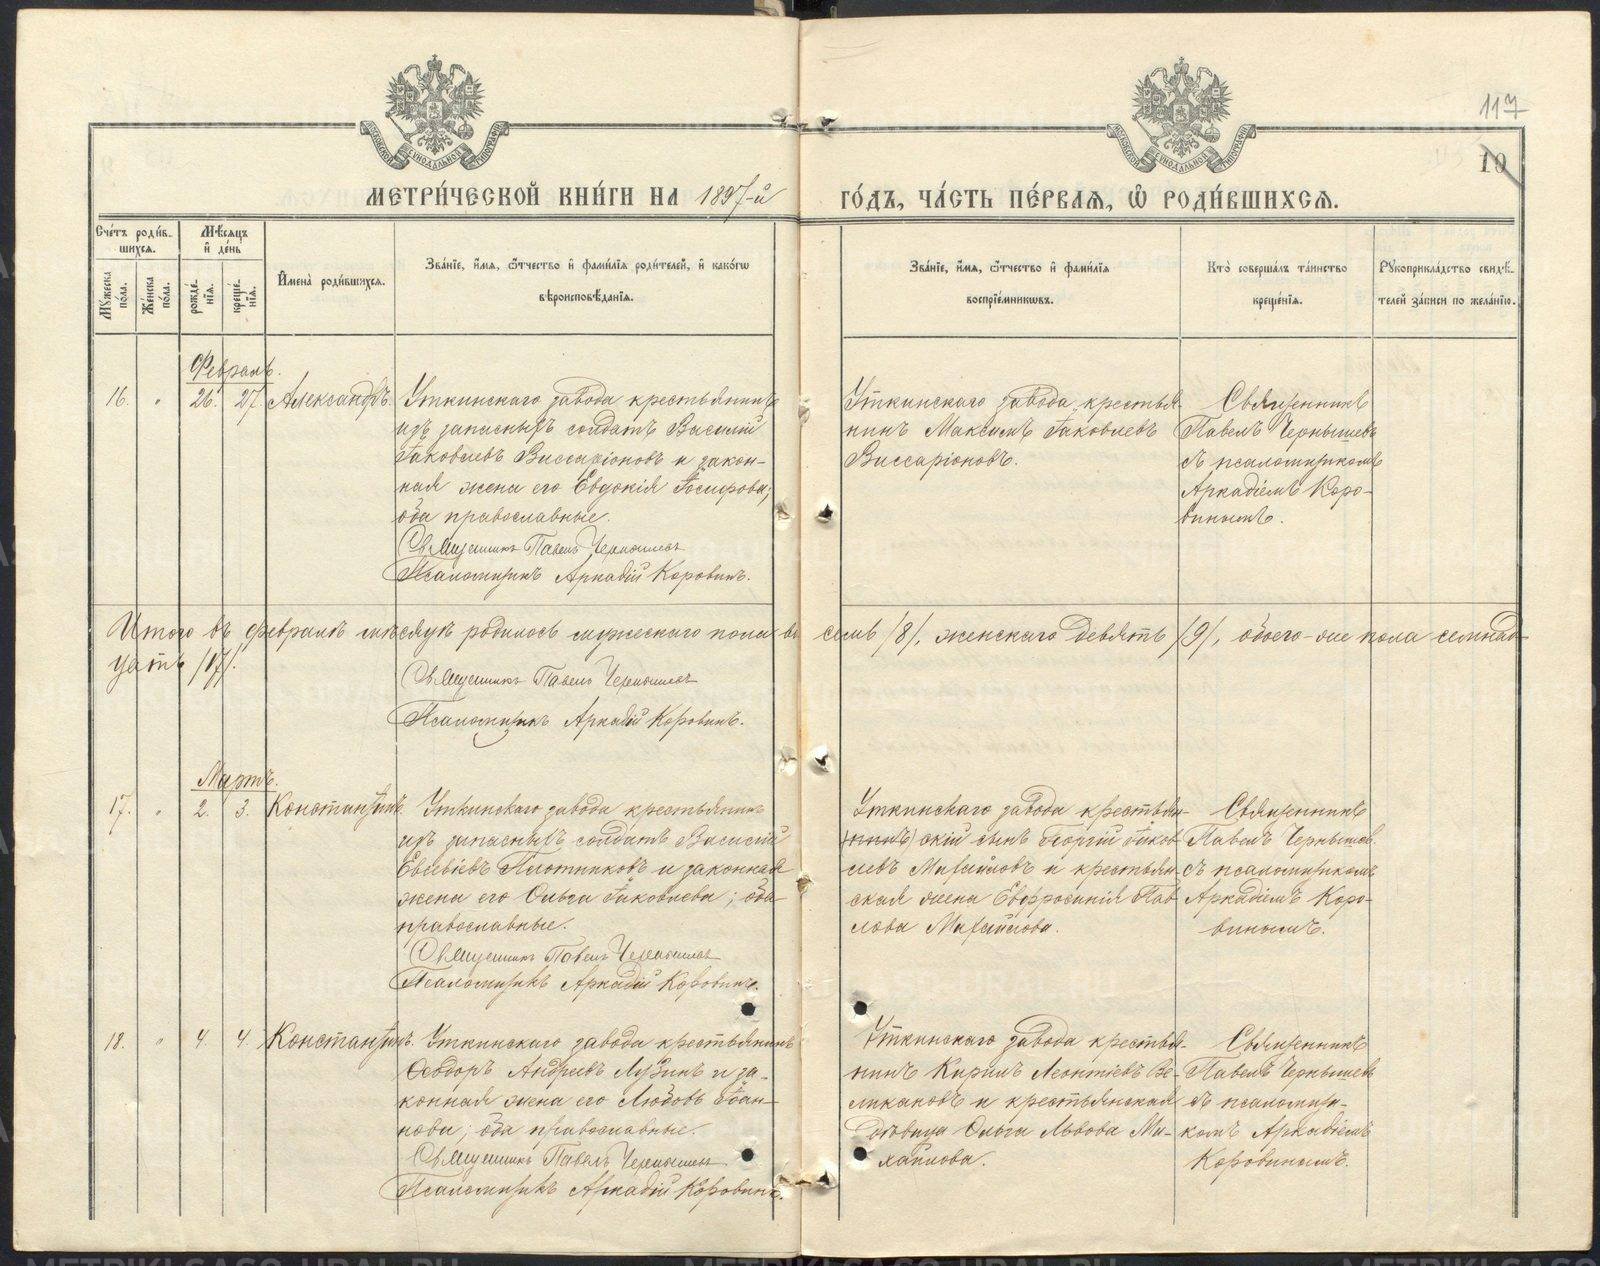 117
10
МЕТРИ́ЧЕСКОЙ КНИ́ГИ НА 1897-й ГО́ДЪ, ЧА́СТЬ ПЕ́РВАѦ, Ѽ РОДИ́ВШИХСѦ.
Сче́тъ роди́в-
шихсѧ.
Мѣ́сѧцъ
и҆ де́нь
Мꙋ́жеска по́ла.
Же́нска по́ла.
рожде́-
нїѧ.
креще́-
нїѧ.
И҆мена̀ роди́вшихсѧ.
Зва́нїе, и҆́мѧ, ѻ҆́тчество и҆ фамі́лїѧ роди́телей, и҆ како́гѡ
вѣроисповѣ́данїѧ.
Зва́нїе, и҆́мѧ, ѻ҆́тчество и҆ фамі́лїѧ
воспрїе́мникѡвъ.
Кто̀ соверша́лъ та́инство
креще́нїѧ.
Рꙋкоприкла́дство свидѣ́-
телей за́писи по жела́нїю.
Февраль.
16. " 26. 27. Александръ.
Уткинскаго завода крестьянинъ
изъ запасныхъ солдатъ Василій
Іаковлевъ Виссаріоновъ и закон-
ная жена его Евдокія Іосифова;
оба православные.
Священникъ Павелъ Чернышевъ
Псаломщикъ Аркадій Коровинъ.
Уткинскаго завода крестья-
нинъ Максимъ Іаковлевъ
Виссаріоновъ.
Священникъ
Павелъ Чернышевъ
съ псаломщикомъ
Аркадіемъ Коро-
винымъ.
Итого въ февралѣ мѣсяцѣ родилось мужескаго пола во семь /8/, женскаго девять /9/, обоего-же пола семнад-
цать /17/.
Священникъ Павелъ Чернышевъ
Псаломщикъ Аркадій Коровинъ.
Мартъ.
17. " 2. 3. Константинъ.
Уткинскаго завода крестьянинъ
изъ запасныхъ солдатъ Василій
Плотниковъ и законная
жена его Ольга Іаковлева; оба
православные.
Священникъ Павелъ Чернышевъ
Псаломщикъ Аркадій Коровинъ.
Уткинскаго завода крестьян-
(нинъ) скій сынъ Георгій Іаков-
левъ Михайловъ и крестьян-
ская жена Евфросинія Пав-
лова Михайлова.
Священникъ
Павелъ Чернышевъ
съ псаломщикомъ
Аркадіемъ Коро-
винымъ.
18. " 4. 4. Константинъ.
Уткинскаго завода крестьянинъ
Ѳеодоръ Андреевъ Лузинъ и за-
конная жена его Любовь Іоан-
нова; оба православные.
Священникъ Павелъ Чернышевъ
Псаломщикъ Аркадій Коровинъ.
Уткинскаго завода крестья-
нинъ Кирилъ Леонтіевъ Ве-
ликановъ и крестьянская
дѣвица Ольга Львова Ми-
хайлова.
Священникъ
Павелъ Чернышевъ
съ псаломщи-
комъ Аркадіемъ
Коровинымъ.